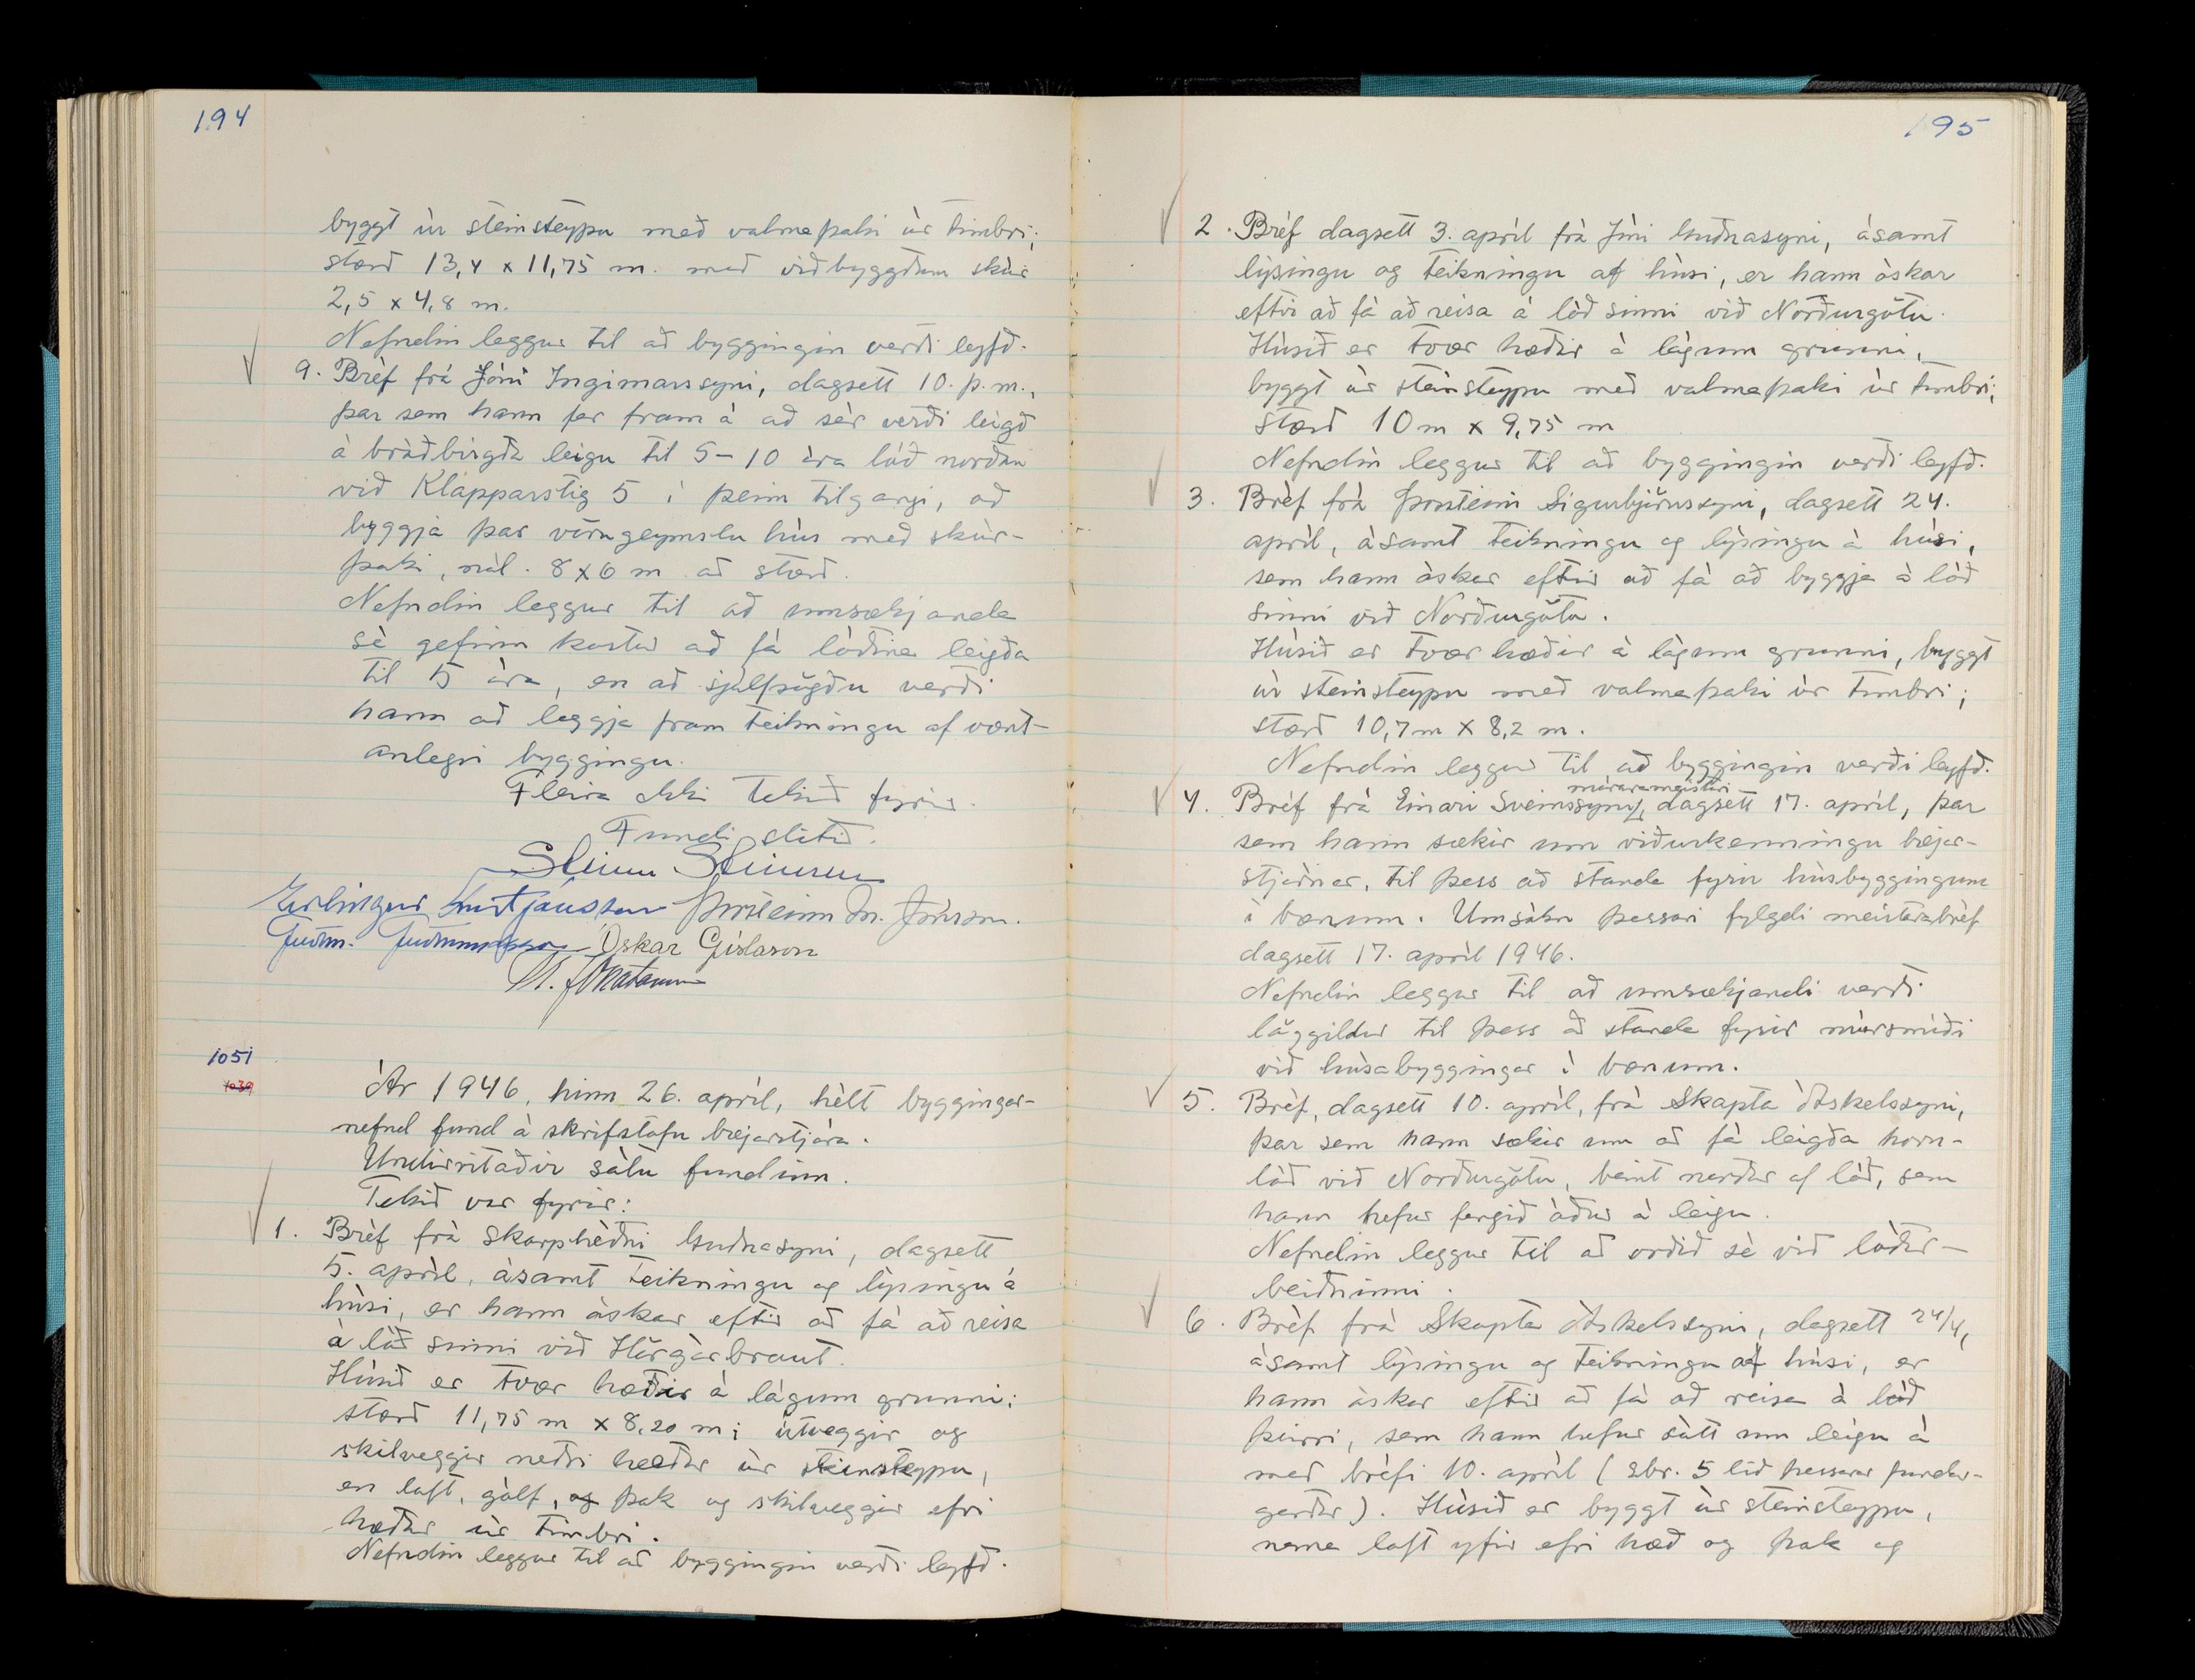 194
byggt úr steinsteypu með valmaþaki úr timbri;
stærð 13,4 x 11,75 m. með viðbyggðum skúr
2,5 x 4,8 m.
Nefndin leggur til að byggingin verði leyfð.
9. Bréf frá Jóni Ingimarssyni, dagsett 10. þ.m.,
þar sem hann fer fram á að sér verði leigð
á bráðbirgða leigu til 5-10 ára lóð norðan
við Klapparstíg 5 í þeim tilgangi, að
byggja þar vörugeymslu hús með skúr-
þaki, nál. 8x6 m að stærð.
Nefndin leggur til að umsækjanda
sé gefinn kostur að fá lóðina leigða
til 5 ára, en að sjálfsögðu verði
hann að leggja fram teikningu af vænt-
anlegri byggingu.
Fleira ekki tekið fyrir.
Fundi slitið.
Steinn Steinsen
Erlingur Kristjánsson Þorsteinn M. Jónsson.
Guðm. Guðmundsson Óskar Gíslason
H. J. Hvatamm
1051
1039
Ár 1946, hinn 26. apríl, hélt byggingar-
nefnd fund á skrifstofu bæjarstjóra.
Undirritaðir sátu fundinn.
Tekið var fyrir:
1. Bréf frá Skarphéðni Guðnasyni, dagsett
5. apríl, ásamt teikningu og lýsingu á
húsi, er hann óskar eftir að fá að reisa
á lóð sinni við Hörgárbraut.
Húsið er tvær hæðir á lágum grunni;
stærð 11,75 m x 8,20 m; útveggir og
skilveggir neðri hæðar úr steinsteypu,
en loft, gólf, og þak og skilveggir efri
hæðar úr timbri.
Nefndin leggur til að byggingin verði leyfð.
195
2. Bréf dagsett 3. apríl frá Jóni Guðnasyni, ásamt
lýsingu og teikningu af húsi, er hann óskar
eftir að fá að reisa á lóð sinni við Norðurgötu.
Húsið er tvær hæðir á lágum grunni,
byggt úr steinsteypu með valmaþaki úr timbri;
stærð 10 m x 9,75 m
Nefndin leggur til að byggingin verði leyfð.
3. Bréf frá Þorsteini Sigurbjörnssyni, dagsett 24.
apríl, ásamt teikningu og lýsingu á húsi,
sem hann óskar eftir að fá að byggja á lóð
sinni við Norðurgötu.
Húsið er tvær hæðir á lágum grunni, byggt
úr steinsteypu með valmaþaki úr timbri;
stærð 10,7 m x 8,2 m.
Nefndin leggur til að byggingin verði leyfð.
múrarameistari
4. Bréf frá Einari Sveinssyni, dagsett 17. apríl, þar
sem hann sækir um viðurkenningu bæjar-
stjórnar, til þess að standa fyrir húsbyggingum
í bænum. Umsókn þessari fylgdi meistarabréf
dagsett 17. apríl 1946.
Nefndin leggur til að umsækjandi verði
löggildur til þess að standa fyrir múrsmíði
við húsabyggingar í bænum.
5. Bréf, dagsett 10. apríl, frá Skapta Áskelssyni,
þar sem hann sækir um að fá leigða horn-
lóð við Norðurgötu, beint norður af lóð, sem
hann hefur fengið áður á leigu.
Nefndin leggur til að orðið sé við lóðar-
beiðninni.
6. Bréf frá Skapta Áskelssyni, dagsett 24/4,
ásamt lýsingu og teikningu af húsi, er
hann óskar eftir að fá að reisa á lóð
þeirri, sem hann hefur sótt um leigu á
með bréfi 10. apríl (sbr. 5 lið þessarar fundar-
gerðar). Húsið er byggt úr steinsteypu,
nema loft yfir efri hæð og þak og